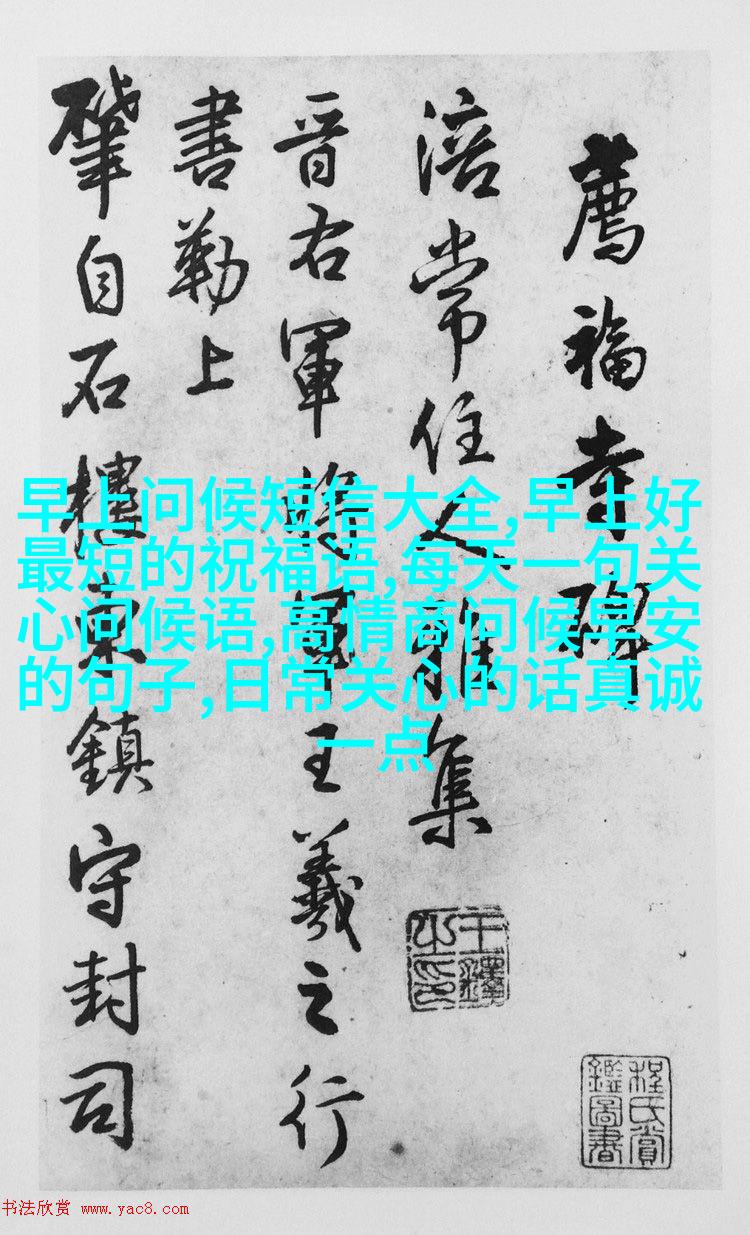 薦福寺碑
涪常住人雅集
晉右軍將軍王羲之行
書勒上
肇自石樓東鎮守封司
早上问候短信大全,早上好
最短的祝福语,每天一句关
心问候语,高情商问候早安
的句子,日常关心的话真诚
一点
程氏賞
鑑圖書
书法欣赏 www.yac8.com